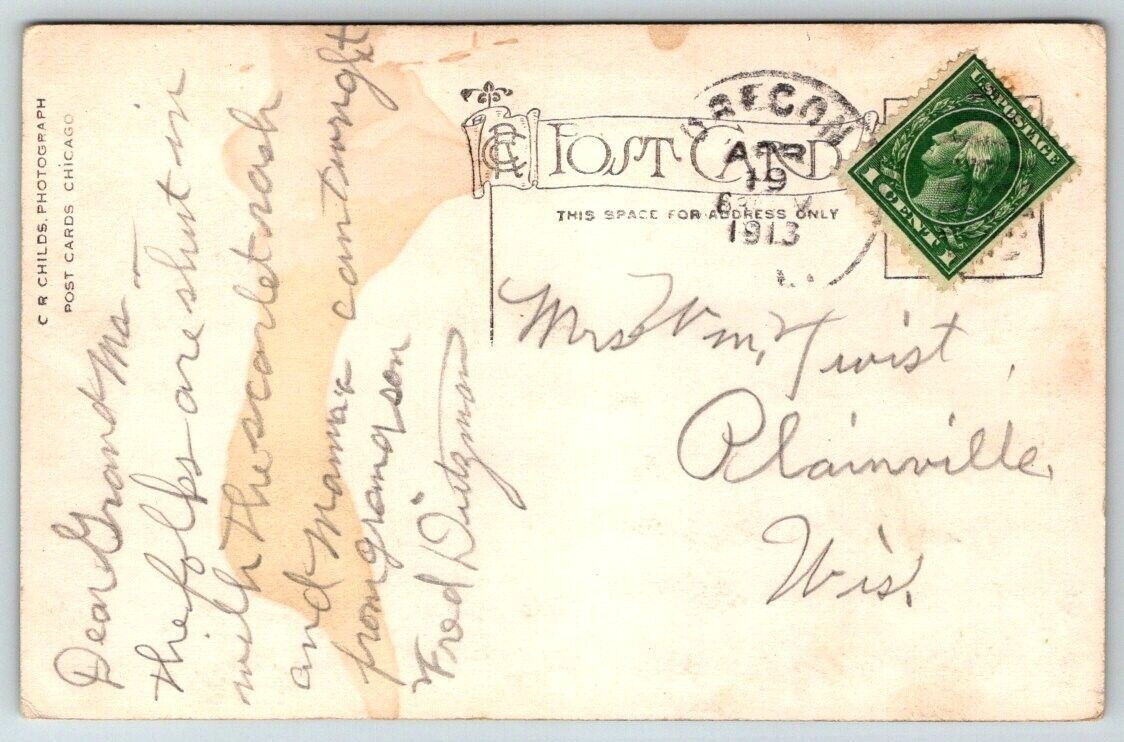 C R CHILDS. PHOTOGRAPH
POST CARDS CHICAGO
Dear Grand Ma —
the folks are shut in
with the scarlet rash
and Mamma cant wright
from grandson
Fred Dietzman
POST CARD
THIS SPACE FOR ADDRESS ONLY
APR
19
1913
U.S. POSTAGE
1 CENT 1
Mrs Wm. Twist
Plainville
Wis.